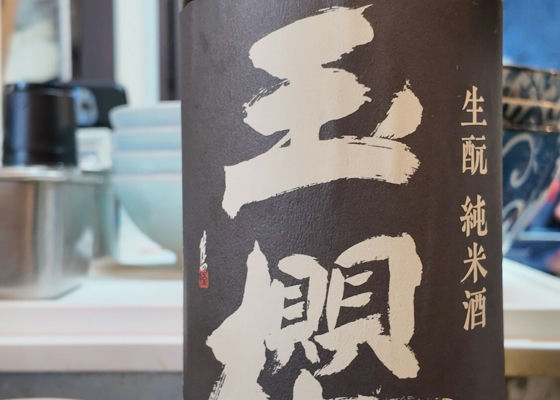 生酛 純米酒
玉櫻